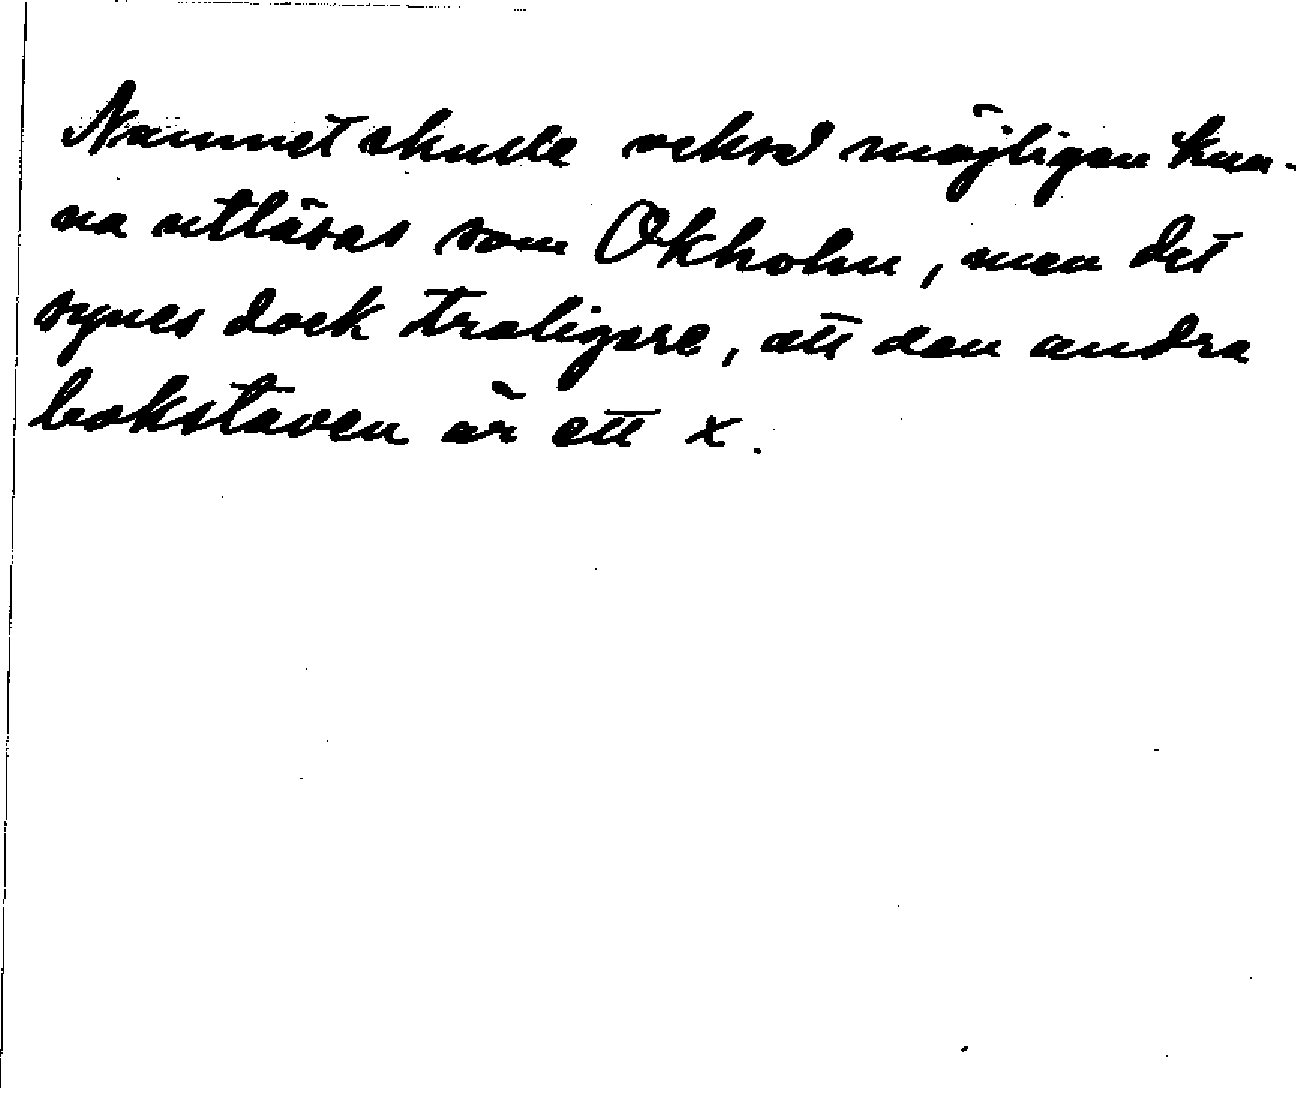 Namnet skulle också möjligen kun-
na utläsas som Okholm, men det
synes dock troligare, att den andra
bokstaven är ett x.